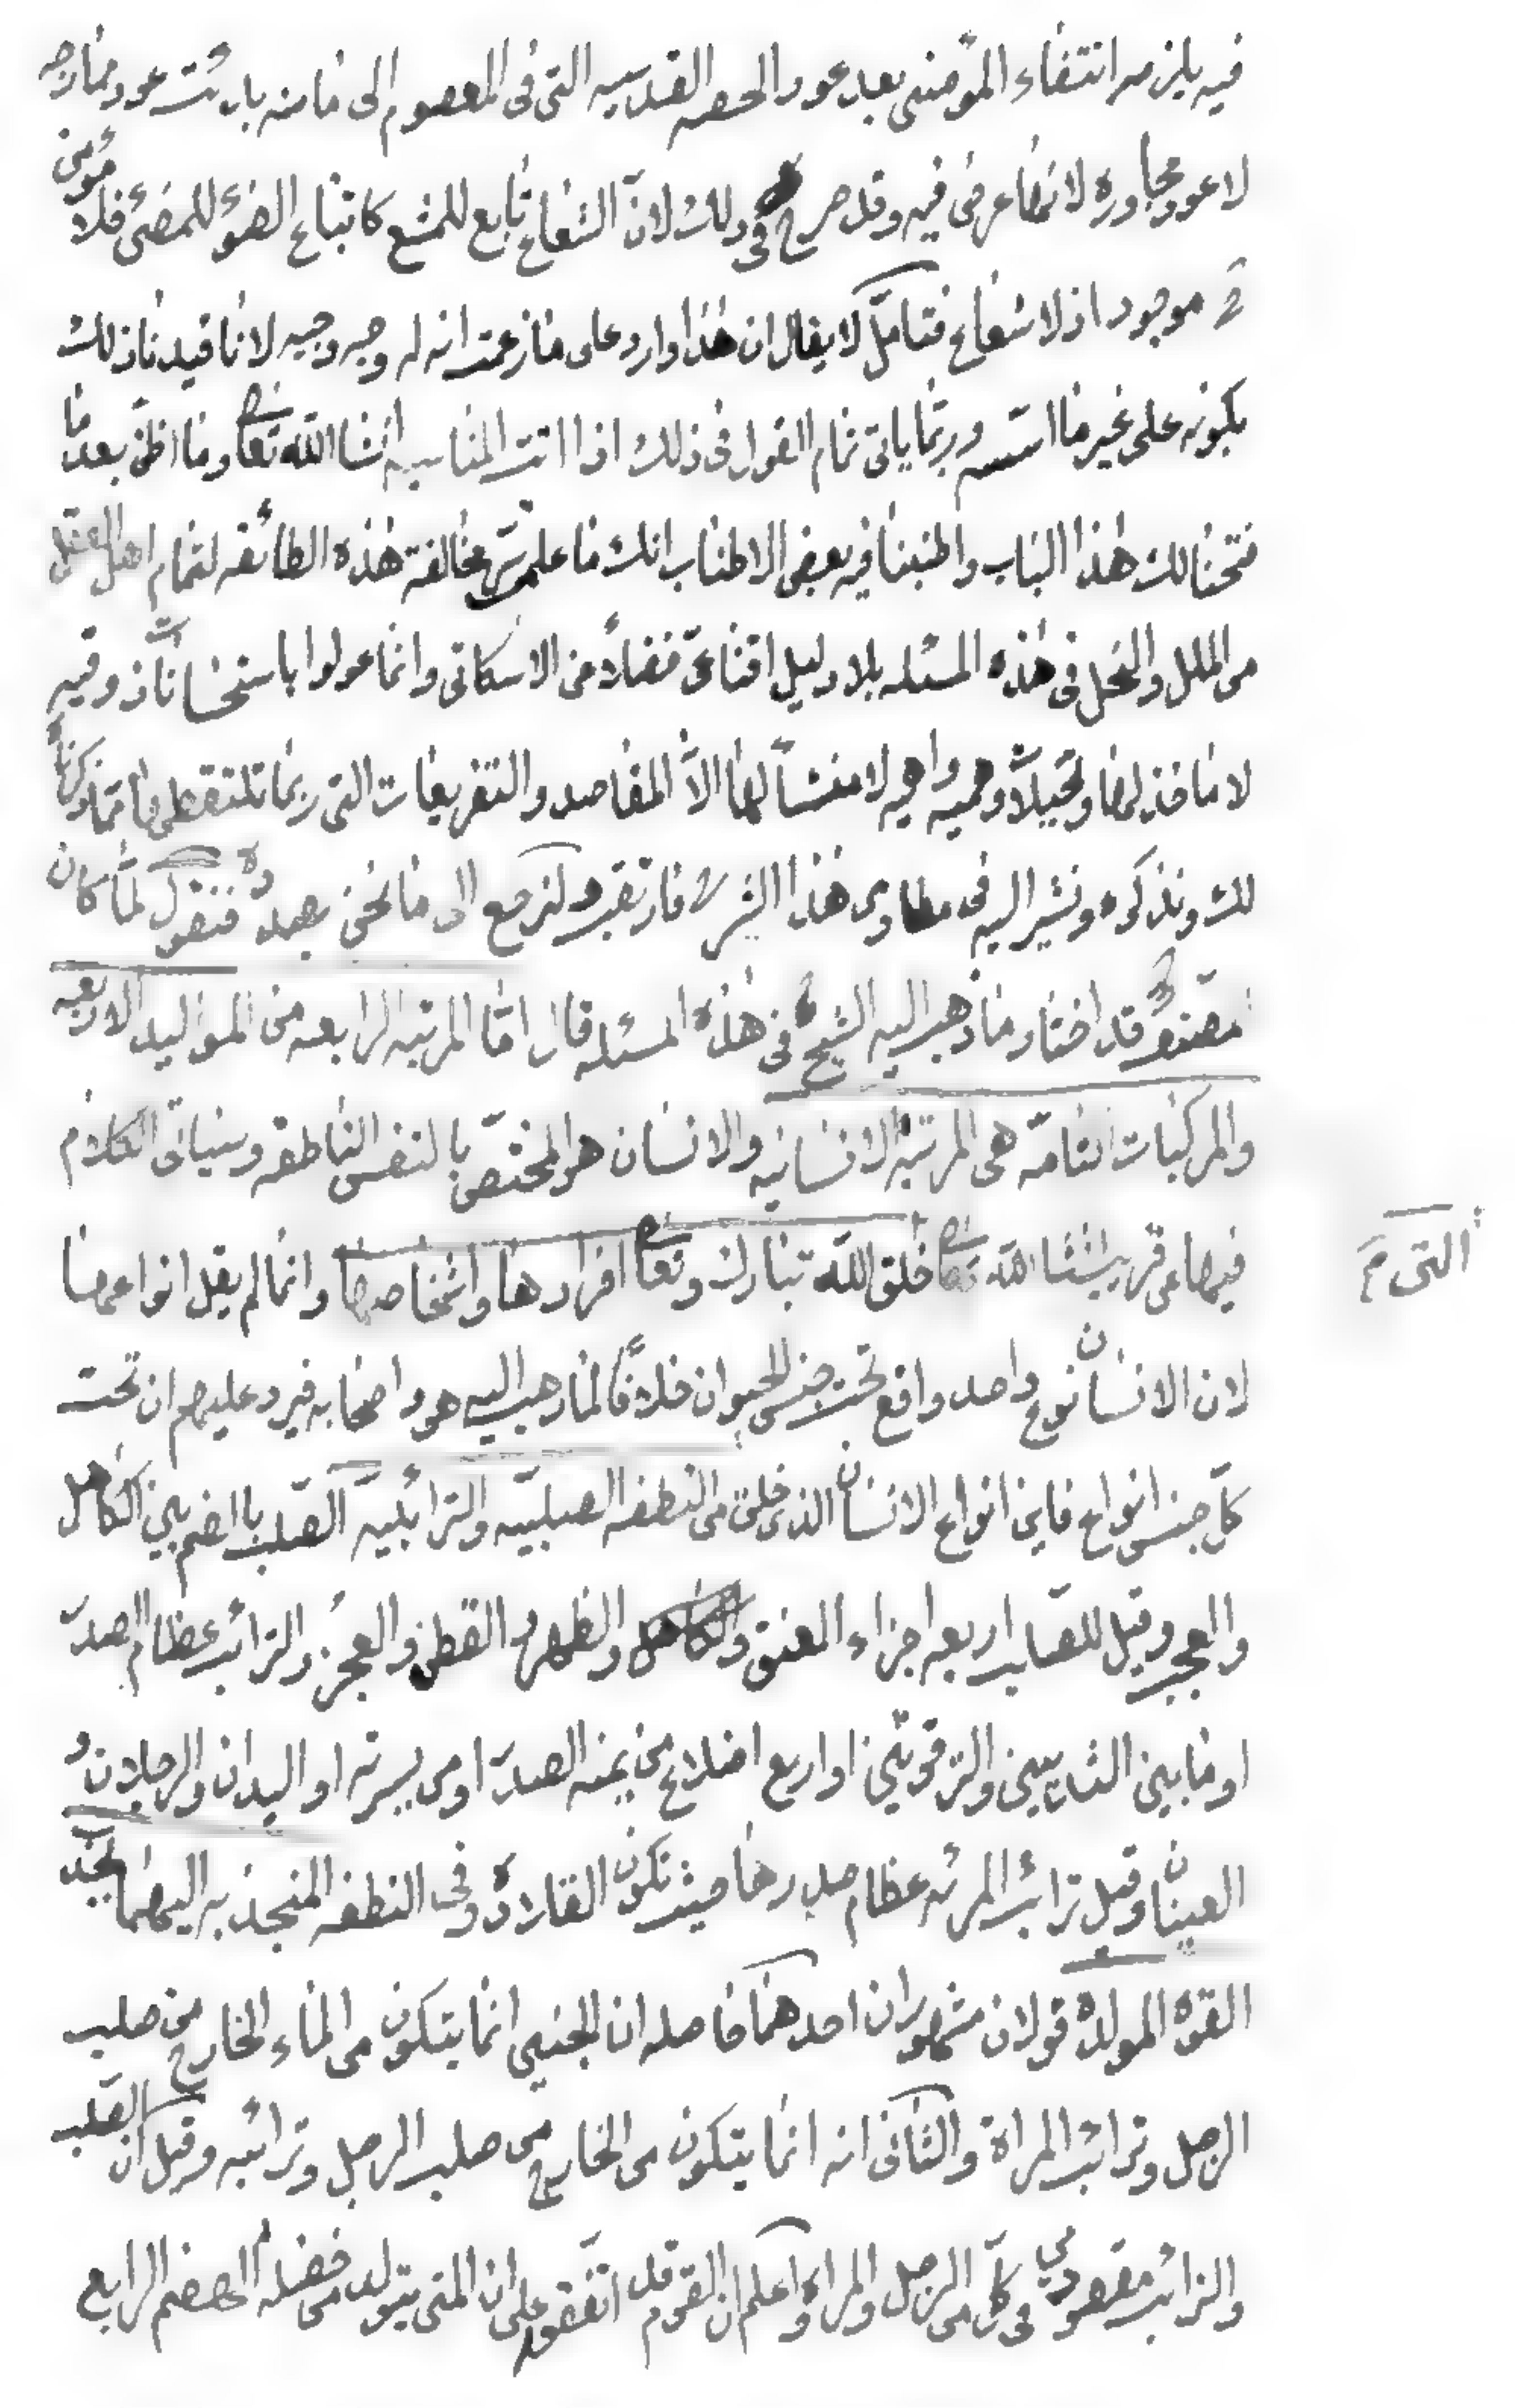 فيه يلزمه انتفاء المؤمنين بعد عود الحصه القدسيه التى فى المعصوم الى ما منه بدئت عود ممازجه
لا عود مجاوره لانها عرض فيه وقد صرح فى ذلك لانّ الشعاع تابع للمشع كاتباع الضوء للمضئ فلا مؤمن
ح موجود اذ لا شعاع فتامّل لا يقال ان هذا وارد على ما زعمت انه له وجه وجيه لانا قيدنا ذلك
بكونه على غير ما اسّسه وربّما ياتى تمام القول فى ذلك اذا اتت المناسبه انشا الله تعالى وما اظن بعد ما
فتحنا لك هذا الباب واطنبنا فيه بعض الاطناب انك ما علمت مخالفة هذه الطائفه لتمام اهل العقل
من الملل والنحل فى هذه المسئله بلا دليل اقناعىّ فضلاً من الاسكاتى وانما عولوا باستحسانات ذوقيه
لا مأخذ لها وتخيلات وهميه واهيه لا منشأ لها الاّ المفاصد والتفريعات التى ربما تلتقطها مما ذكرنا
لك ونذكره ونشير اليه فى مطاوى هذا الشرح فارتقب ولنرجع الى ما نحن بصدده فنقول لمّا كان
مصنف قد اختار ما ذهب اليه الشيخ فى هذه المسئله قال امّا المرتبه الرابعه من المواليد الاربعه
والمركبات التامّه هى المرتبه الانسانيه والانسان هو المختصّ بالنفس الناطقه وسياتى الكلام
فيها عن قريب انشا الله تعالى خلق الله تبارك وتعالى افرادها واشخاصها وانما لم يقل انواعها
التى م
لان الانسان نوع واحد واقع تحت جنس الحيوان خلافاً لما ذهب اليه هو واصحابه فيرد عليهم ان تحت
كلّ جنس انواع فاين انواع الانسان الذى خلق من النطفه الصلبيّه والترائبيّه الصّلب بالضم بين الكاهل
والعجب وقيل للصلب اربعه اجزاء العنق والظهر والقطن والعجز والترائب عظام الصدر
او ما بين الثديين والترقوتين او اربع اضلاع من يمنه الصدر او من يسرته او اليدان والرجلان و
العينان وقيل ترائب المرئه عظام صدرها حيث تكون القلاده وفى النطفه المنجذبه اليهما بجذب
القوه المولده قولان مشهوران احدهما حاصله ان الجنين انما يتكون من الماء الخارج من صلب
الرجل وترائب المراة والثانى انه انما يتكون من الخارج من صلب الرجل وترائبه وقيل ان الصلب
والترائب مقصود فى كلّ من الرجل والمراه واعلم ان القوم قد اتّفقوا على ان المنى يتولد من فضله الهضم الرابع